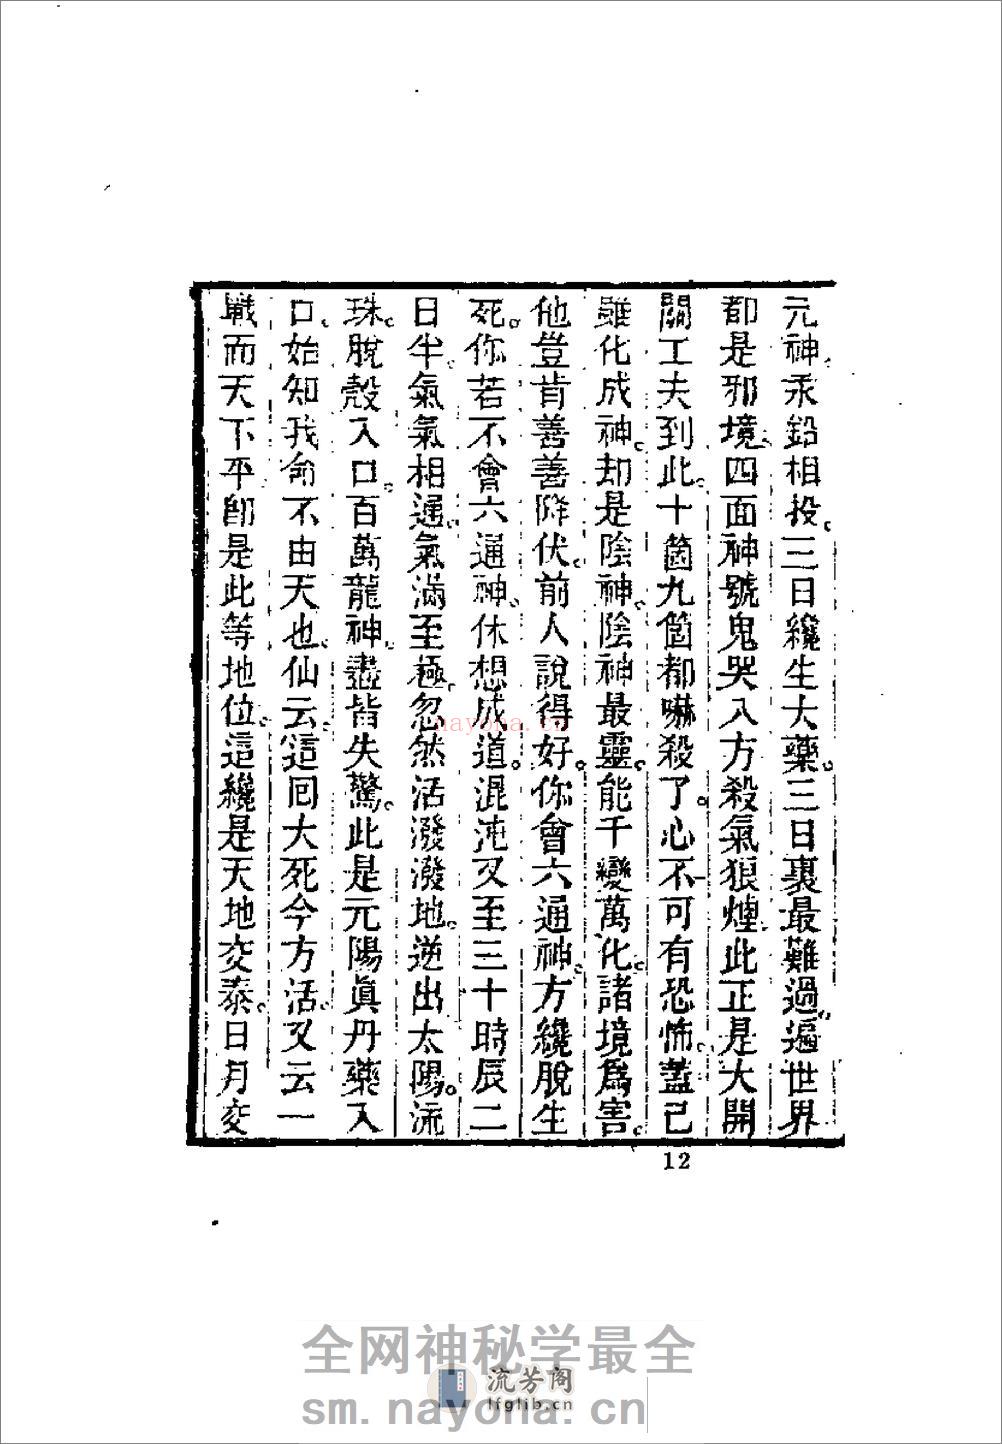 元神。汞鉛相投。三日纔生大藥。三日裏最難過。遍世界
都是邪境。四面神號鬼哭入方殺氣狼煙。此正是大開
關工夫到此。十箇九箇都嚇殺了。心不可有恐怖。蓋已
雖化成神。却是陰神。陰神最靈。能千變萬化。諸境爲害。
他豈肯善善降伏。前人說得好。你會六通神。方纔脫生
死。你若不會六通神。休想成道。混沌又至三十時辰二
日半。氣氣相通。氣滿至極。忽然活潑潑地。逆出太陽。流
珠。脫殼入口。百萬龍神。盡皆失驚。此是元陽眞丹藥入
口。始知我命不由天也。仙云。這回大死今方活。又云一
戰而天下平。卽是此等地位。這纔是天地交泰。日月交
12
nayona.cn
全网神秘学最全
流芳阁
lfglib.cn
sm.nayona.cn